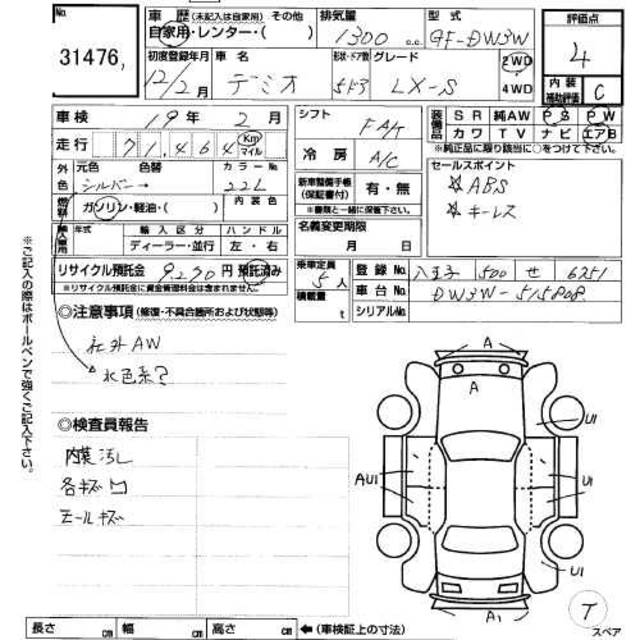 No.
31476,
車歴 (未記入は自家用) その他
自家用・レンター・( )
排気量
1300 c.c.
型式
GF-DW3W
評価点
4
初度登録年月
12/2月
車名
デミオ
形状・ドア数
5ドア
グレード
LX-S
2WD
4WD
内装
補助評価
C
車検 19年 2月
走行 71,464 Km
マイル
外色
元色 色替
シルバー→
カラーNo.
22L
燃料
ガソリン・軽油・( )
内装色
輸入車用
年式
輸入区分
ディーラー・並行
ハンドル
左・右
リサイクル預託金 9,270円 預託済み
※リサイクル預託金に資金管理料金は含まれません。
シフト
FAT
冷房
A/C
新車整備手帳
(保証書付)
有・無
※書類と一緒に保管下さい。
名義変更期限
月 日
装備品
SR 純AW PS PW
カワ TV ナビ エアB
※純正品に限り該当に○をつけて下さい。
セールスポイント
☆ABS
☆キーレス
乗車定員
5人
積載量
t
登録No. 八王子 500 せ 6251
車台No. DW3W-515808
シリアルNo.
◎注意事項 (修復・不具合箇所および状態等)
社外AW
水色系?
※ご記入の際はボールペンで強くご記入下さい。
◎検査員報告
内装汚し
各キズ凹
モールキズ
A
A
U1
AU1
U1
U1
A1
T
スペア
長さ cm 幅 cm 高さ cm ←(車検証上の寸法)